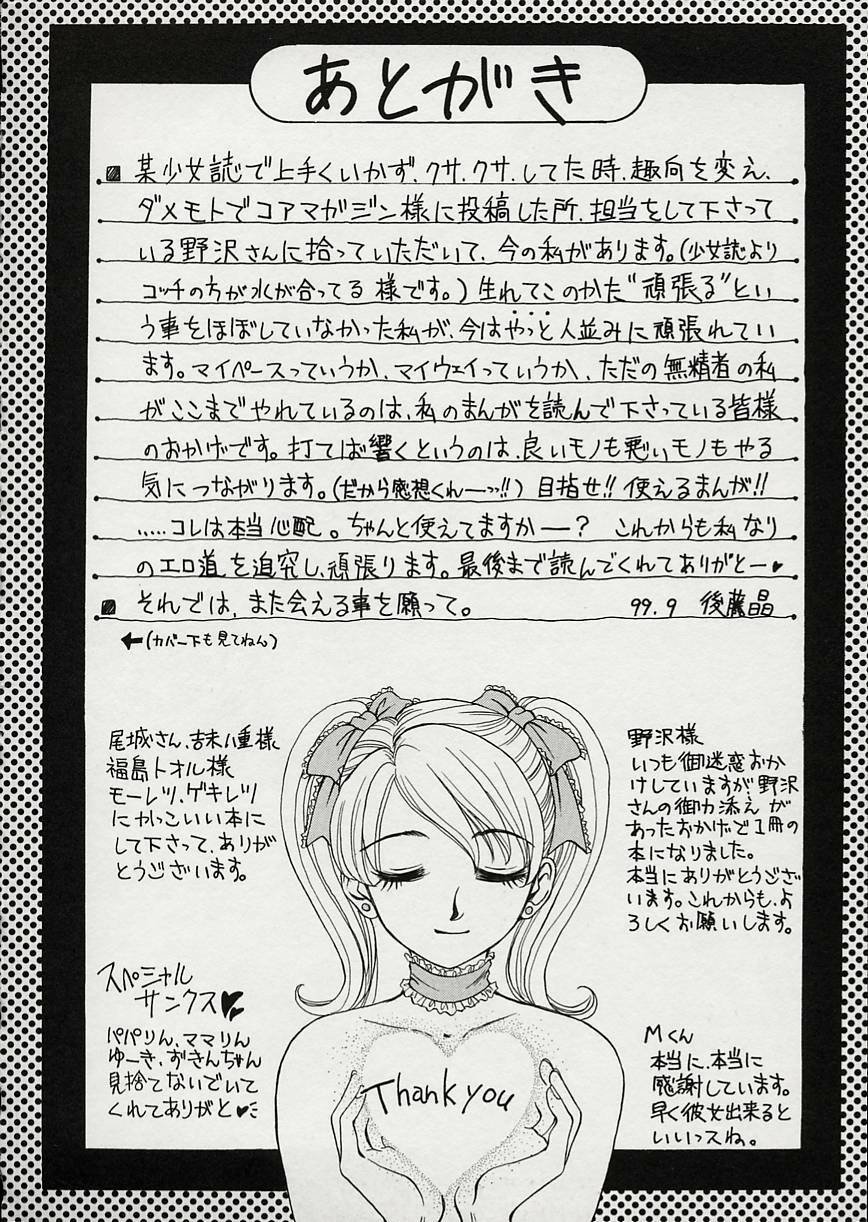 あとがき
某少女誌で上手くいかず、クサ、クサ、してた時、趣向を変え、
ダメモトでコアマガジン様に投稿した所、担当をして下さって
いる野沢さんに拾っていただいて、今の私があります。(少女誌より
コッチの方が水が合ってる 様です。)生れてこのかた“頑張る”とい
う事をほぼしていなかった私が、今はやっと人並みに頑張れてい
ます。マイペースっていうか、マイウェイっていうか、ただの無精者の私
がここまでやれているのは、私のまんがを読んで下さっている皆様
のおかげです。打てば響くというのは、良いモノも悪いモノもやる
気につながります。(だから感想くれーっ!!) 目指せ!! 使えるまんが!!
……コレは本当心配。ちゃんと使えてますかー? これからも私なり
のエロ道を追究し、頑張ります。最後まで読んでくれてありがとー♥
それでは、また会える事を願って。 99.9 後藤晶
←(カバー下も見てねん)
尾城さん、吉末八重様
福島トオル様
モーレツ、ゲキレツ
にかっこいい本に
して下さって、ありが
とうございます。
野沢様
いつも御迷惑おか
けしていますが野沢
さんの御力添えが
あったおかげで1冊の
本になりました。
本当にありがとうござい
います。これからも、よ
ろしくお願いします。
スペシャル
サンクス♥
パパりん、ママりん
ゆーき、おきんちゃん
見捨てないでいて
くれてありがと♥
Mくん
本当に、本当に
感謝しています。
早く彼女出来ると
いいっスね。
Thank you